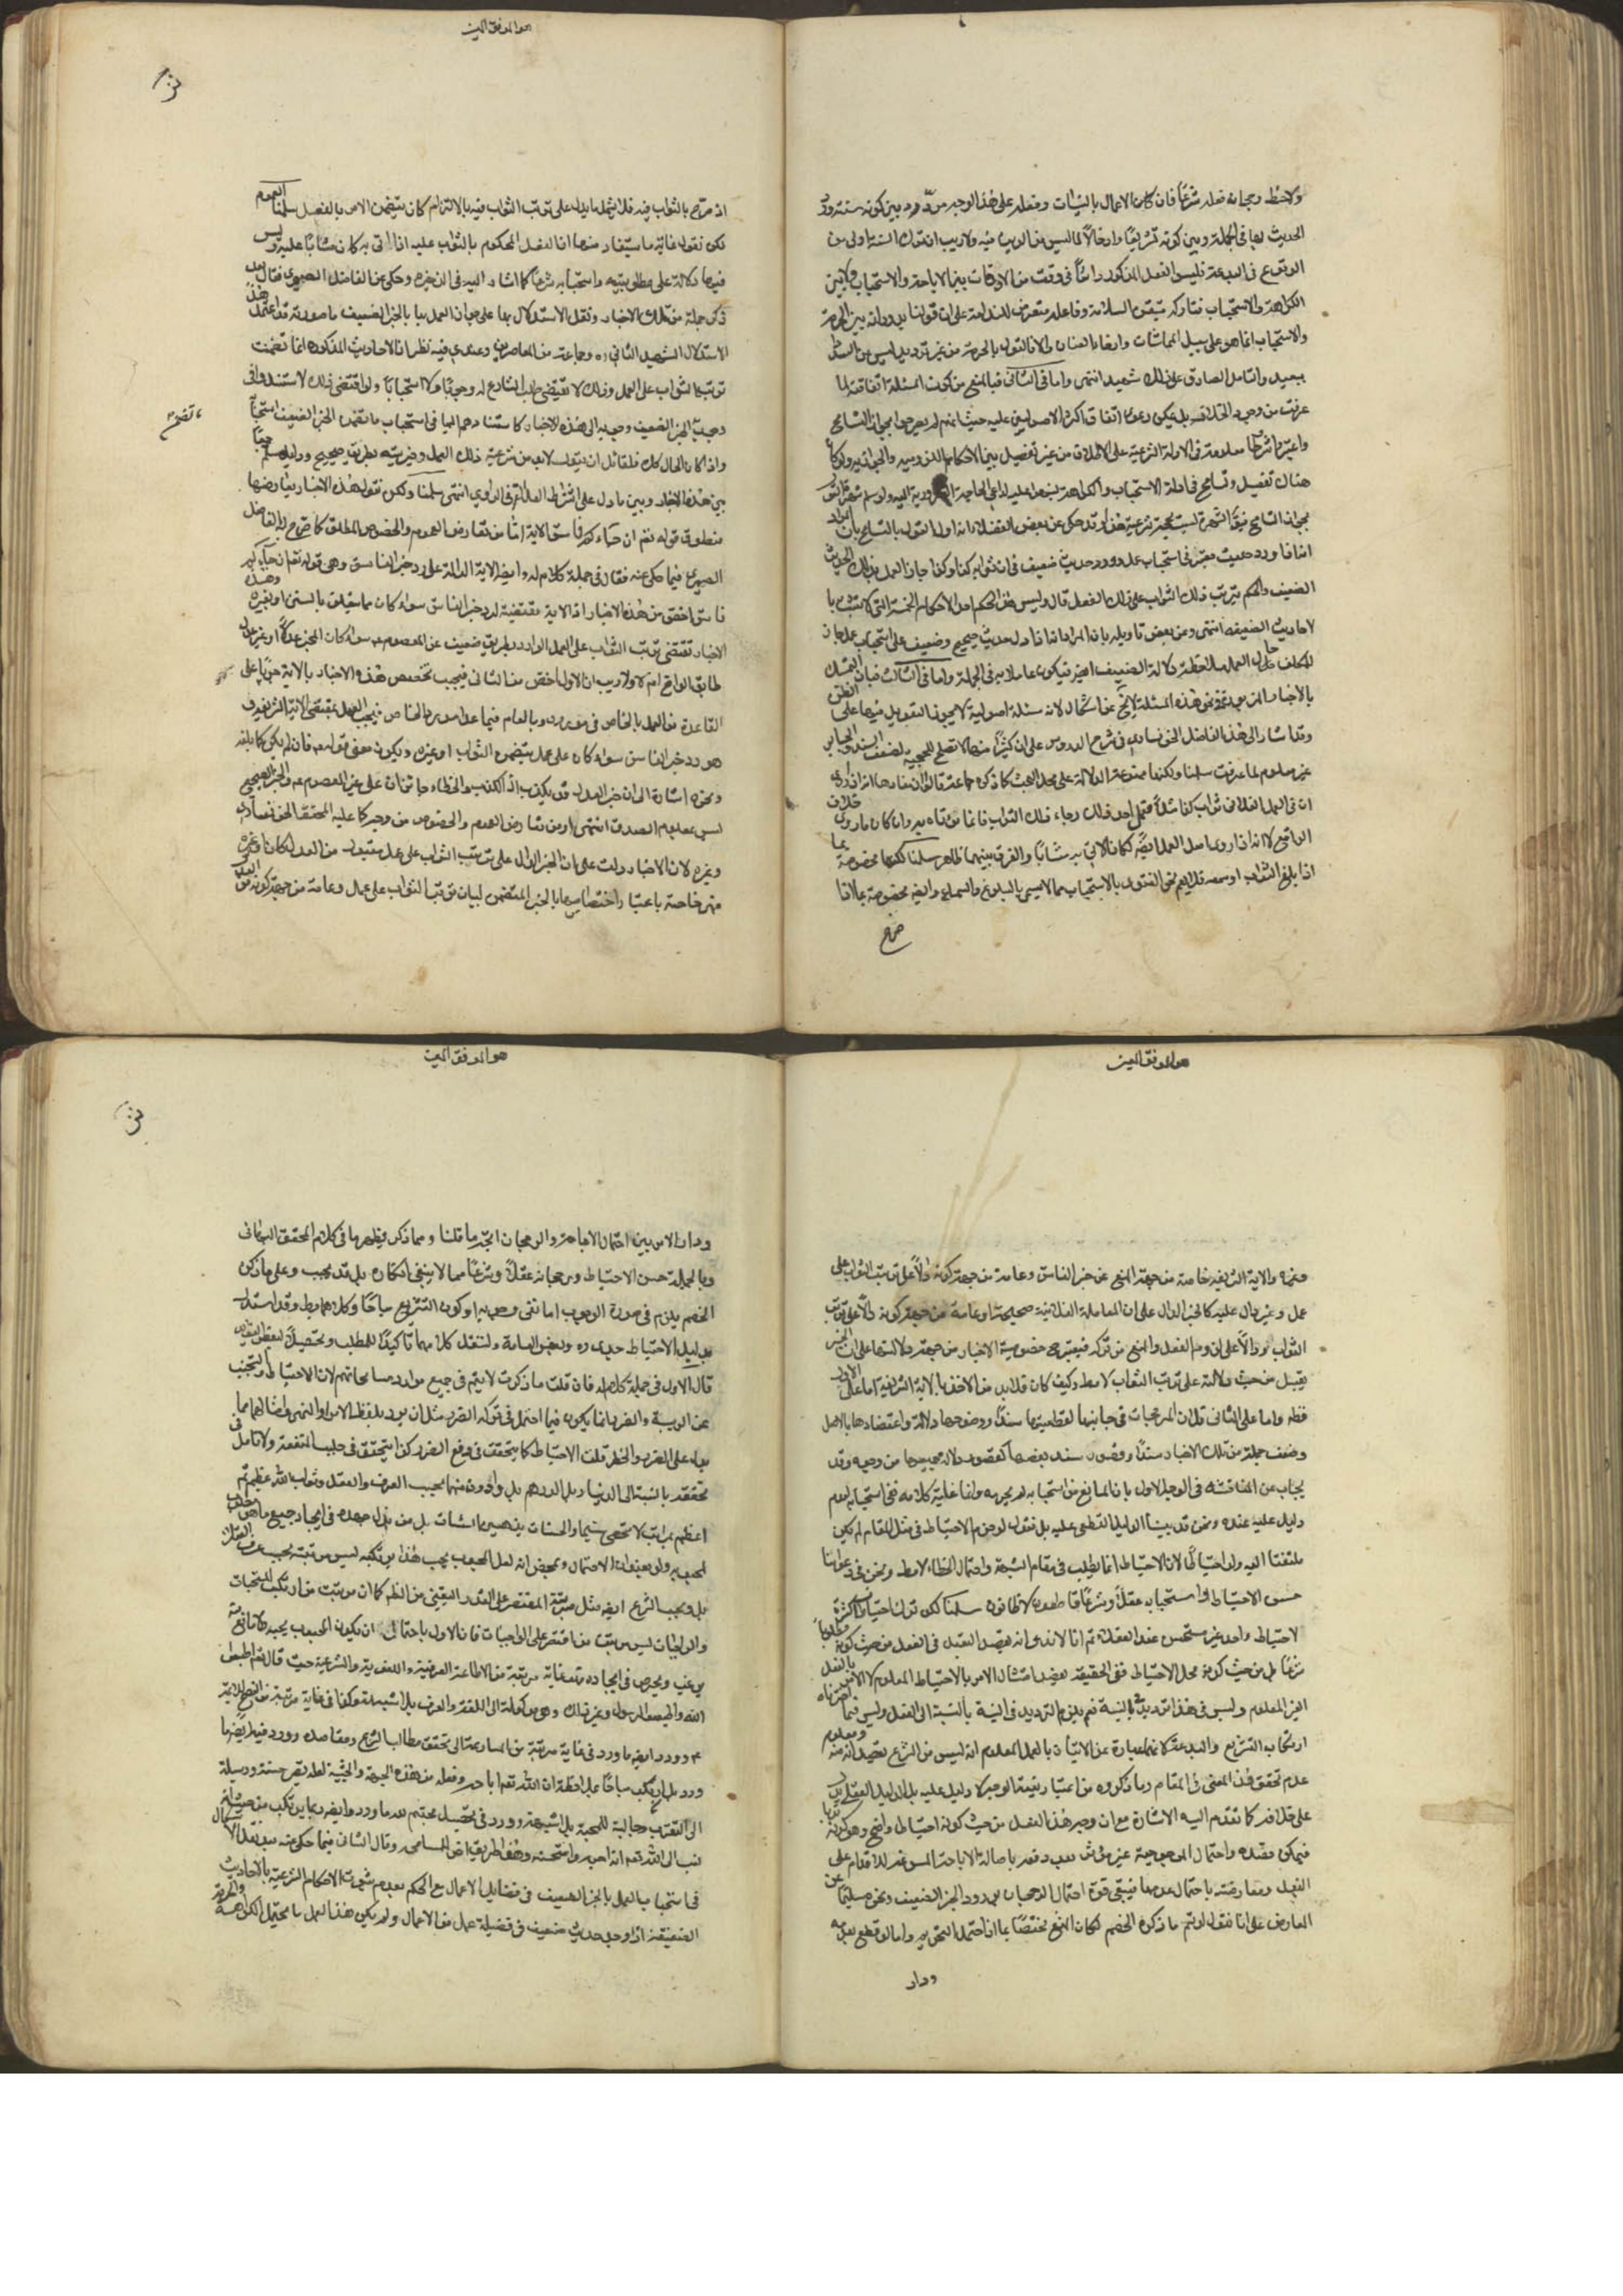 ولاحظ رجحان فعله شرعا فان الاعمال بالنيات وفعله على هذا الوجه مردد بين كونه سنة ورد
الحديث بها في الجملة وبين كونه تشريعا وادخالا لما ليس من الدين فيه ولا ريب ان ترك السنة اولى من
الوقوع في البدعة فليس الفعل المذكور دائما في وقت من الاوقات بين الاباحة والاستحباب ولا بين
الكراهة والاستحباب فتاركه متيقن السلامة وفاعله متعرض للندامة على ان قولنا بدورانه بين الحرمة
والاستحباب انما هو على سبيل المماشات وارخاء العنان والا فالقول بالحرمة من غير ترديد ليس من السداد
ببعيد والتامل الصادق على ذلك شهيد انتهى واما في الثاني فبالمنع من كون المسئلة اتفاقية لما
عرفت من وجود الخلاف بل يمكن دعوى اتفاق اكثر الاصوليين عليه حيث انهم لم يصرحوا بجواز التسامح
واعتبروا شروطا معلومة في الادلة الشرعية على الاطلاق من غير تفصيل بين الاحكام الندبية والوجوبية ولو كان
هناك تفصيل وتسامح في ادلة الاستحباب والكراهة لنبهوا عليه لداعي الحاجة الضرورية اليه ولو سلم شهرة القول
بجواز التسامح فيقال الشهرة ليست بحجة شرعية هذا وقد حكى عن بعض الفضلاء انه اول القول بالتسامح بان المراد
انه اذا ورد حديث معتبر في استحباب عمل وورد حديث ضعيف في ان ثوابه كذا وكذا جاز العمل بذلك الحديث
الضعيف والحكم بترتب ذلك الثواب على ذلك الفعل قال وليس هذا الحكم احد الاحكام الخمسة التي لا تثبت با
لاحاديث الضعيفة انتهى وعن بعض تاويله بان المراد انه اذا دل حديث صحيح وضعيف على استحباب عمل جاز
للمكلف حال العمل ملاحظة دلالة الضعيف ايضا فيكون عاملا به في الجملة واما في الثالث فبان التمسك
بالاخبار المزبورة في هذه المسئلة لا يخ عن اشكال لانه مسئلة اصولية لا يجوز التعويل فيها على الظن
وقد اشار الى هذا الفاضل الخونساري في شرح الدروس على ان كثيرا منها لا تصلح للحجية لضعف السند والجابر
غير معلوم لما عرفت سلمنا ولكنها ممنوعة الدلالة على محل البحث كما ذكره جماعة قالوا ان مفادها انه اذا روي
ان في العمل الفلاني ثواب كذا مثلا فعمل احد ذلك رجاء ذلك الثواب فانما يثاب به وان كان ما روي خلاف
الواقع لا انه اذا روي اصل العمل ايضا كان الاتي به مثابا والفرق بينهما ظاهر سلمنا لكنها مخصوصة بما
اذا بلغ الثواب او سمعه فلا يعم نحو الفتوى بالاستحباب مما لا يسمى بالبلوغ والسماع وايضا مخصوصة بما اذا
صرح
هو الموفق المعين
اذ صرح بالثواب فيه فلا يشمل ما يدل على ترتب الثواب فيه بالالتزام كان يتضمن الامر بالفعل سلمنا العموم
لكن نقول غاية ما يستفاد منها ان الفعل المحكوم بالثواب عليه اذا اتى به كان مثابا عليه وليس
فيها دلالة على مطلوبيته واستحبابه شرعا كما اشار اليه في الذخيرة وحكي عن الفاضل الصبوي فقال بعد
ذكر جملة من تلك الاخبار ونقل الاستدلال بها على جواز العمل بالخبر الضعيف ما صورته قد اعتمد هذا
الاستدلال الشهيد الثاني ره وجماعة من المعاصرين وعندي فيه نظر اذ الاحاديث المذكورة انما تضمنت
ترتب الثواب على العمل وذلك لا يقتضي طلب الشارع له وجوبا ولا استحبابا ولو اقتضى ذلك لاستندوا في
وجوب الخبر الضعيف وجوبه الى هذه الاخبار كاستنادهم اليها في استحباب ما تضمن الخبر الضعيف استحبابا
واذا كان الحال كذلك فلقائل ان يقول لا بد من شرعية ذلك العمل وخيريته بطريق صحيح ودليل مسلم جمعا
بين هذه الاخبار وبين ما دل على اشتراط العدالة في الراوي انتهى سلمنا ولكن نقول هذه الاخبار يعارضها
منطوق قوله تعم ان جاءكم فاسق الاية اما من تعارض العموم والخصوص المطلق كما صرح به الفاضل
فيما حكي عنه فقال في جملة كلام له وايضا الاية الدالة على رد خبر الفاسق وهي قوله تعم ان جاءكم
فاسق اخص من هذه الاخبار اذ الاية مقتضية لرد خبر الفاسق سواء كان مما يتعلق بالسنن او بغيره وهذه
الاخبار تقتضي ترتب الثواب على العمل الوارد بطريق ضعيف عن المعصوم ع سواء كان المخبر عدلا او غير عدل
طابق الواقع ام لا ولا ريب ان الاول اخص من الثاني فيجب تخصيص هذه الاخبار بالاية جريا على
القاعدة من العمل بالخاص في مورده وبالعام فيما عدا مورد الخاص فيجب العمل بمقتضى الاية الشريفة
وهو رد خبر الفاسق سواء كان على عمل يتضمن الثواب او غيره ويكون معنى قوله ع فان لم يكن كما بلغه
ونحوه اشارة الى ان خبر العدل قد يكون كذبا اذ الكذب والخطاء جائزان على غير المعصوم ع والخبر الصحيح
ليس بمعلوم الصدق انتهى او من تعارض العموم والخصوص من وجه كما عليه المحقق الخونساري
وغيره لان الاخبار دلت على ان الخبر الدال على ترتب الثواب على عمل مقبول من العدل كان او غيره
فهي خاصة باعتبار اختصاصها بالخبر المتضمن لبيان ترتب الثواب على عمال وعامة من جهة كونه من العدل
هو الموفق المعين
وغيره والاية الشريفة خاصة من جهة المنع عن خبر الفاسق وعامة من جهة كونه دالا على ترتب الثواب على
عمل وغير دال عليه كالخبر الدال على ان المعاملة الفلانية صحيحة او عامة من جهة كونه دالا على ترتب
الثواب ودالا على لزوم الفعل والمنع من تركه فيعتبر ح خصوصية الاخبار من جهة دلالتها على ان الخبر
يقبل من حيث دلالته على ترتب الثواب لا مط وكيف كان فلا بد من الاخذ بالاية الشريفة اما على الاول
فظ واما على الثاني فلان المرجحات في جانبها لقطعيتها سندا ووضوحها دلالة واعتضادها بالاصل
وضعف جملة من تلك الاخبار سندا وقصور سند بعضها كقصور دلالة جميعها من وجه وقد
يجاب عن المناقشة في الوجه الاول بان المانع من استحبابه لم يحرمه وانما غاية كلامه نفي استحبابه لعدم
دليل عليه عنده ونحن قد بينا الدليل القطعي عليه بل نقول لو جزم الاحتياط في مثل المقام لم يكن
ملتفتا اليه ولو احتمالا لان الاحتياط انما يطلب في مقام الشبهة واحتمال الخطاء لا مط ونحن في دعوانا
حسن الاحتياط واستحبابه عقلا وشرعا قاطعون لا ظانون سلمنا لكن ترك احتياطا كثيرة
لاحتياط واحد غير مستحسن عند العقلاء ثم انا لا ندعي انه يقصد التعبد في الفعل من حيث كونه مطلوبا
شرعا بل من حيث كونه محل الاحتياط ففي الحقيقة يقصد امتثال الامر بالاحتياط المعلوم لا الامر بالفعل
الغير المعلوم وليس في هذا ترديد في النية نعم يلزم الترديد في النية بالنسبة الى الفعل وليس فيما اخترناه
ارتكاب التشريع والبدعة لانهما عبارة عن الاتيان بالعمل المعلوم انه ليس من الشرع بقصد انه منه ومعلوم
عدم تحقق هذا المعنى في المقام وما ذكروه من اعتبار نية الوجه لا دليل عليه بل الدليل العقلي دل
على خلافه كما تقدم اليه الاشارة مع ان وجه هذا الفعل من حيث كونه احتياطا واضح وهو كونه ندبا
فيمكن قصده واحتمال المرجوحية غير مؤثر بعد دفعه باصالة الاباحة المسوغة للاقدام على
الفعل ومعارضته باحتمال عدمها فيبقى قوة احتمال الرجحان بورود الخبر الضعيف ونحوه سليما عن
المعارض على انا نقول لو تم ما ذكره الخصم لكان المنع مختصا بما اذا احتمل التحريم واما لو قطع بعدمه
ودار
هو الموفق المعين
ودار الامر بين احتمال الاباحة والرجحان اتجه ما قلنا ومما ذكر يظهر ما في كلام المحقق البهبهاني
وبالجملة حسن الاحتياط ورجحانه عقلا وشرعا مما لا ينبغي انكاره بل قد يجب وعلى ما ذكره
الخصم يلزم في صورة الوجوب اما نفي وجوبه او كون التشريع مباحا وكلاهما بط وقد استدل
بدليل الاحتياط جدي ره وبعض العامة ولننقل كلامهما تاكيدا للمطلب وتحصيلا لبعض
قال الاول في جملة كلام له فان قلت ما ذكرت لا يتم في جميع موارد مسامحاتهم لان الاحتياط والتجنب
عن الريبة والضرر انما يكون فيما احتمل في تركه الضرر مثل ان يرد بلفظ الامر او النهي وامثالهما مما
يدل على الضرر والخطر قلت الاحتياط كما يتحقق في دفع الضرر كذا يتحقق في جلب المنفعة ولا تامل في
تحققه بالنسبة الى الدينار بل الدرهم بل وادون منهما بحسب العرف والعقل وثواب الله عظيم ثم
اعظم بمراتب لا تحصى سيما والحسنات يذهبن السيئات بل من بذل جهده في ايجاد جميع ما هو مطلوب
بل وبحسب الشرع ايضا مثل مرتبة المقتصر على القدر اليقيني من الظ كما ان مرتبة من ارتكب المستحبات
والواجبات ليس مرتبة من اقتصر على الواجبات
الله واطيعوا الرسول وغير ذلك
ع وورد ايضا ما ورد في غاية مرتبة من المسارعة الى تحقق مطالب الشرع ومقاصده وورد فيه ايضا ما
ورد بل ان يرتكب مباحا بملاحظة ان الله تعم اباحه وفعله من هذه الجهة والحيثية لعله يصير حسنة ووسيلة
الى التقرب وجالبة للمحبة بلا شبهة وورد في تحصيل محبتهم لله ما ورد وايضا ربما يرتكب من حيث انه
نسب الى الله تعم انه احبه واستحسنه وهذا طريق اخر للتسامح وقال الثاني فيما حكي عنه بعد نقل الاشكال
في استحباب العمل بالخبر الضعيف في فضايل الاعمال مع الحكم بعدم ثبوت الاحكام الشرعية بالاحاديث
الضعيفة اذا وجد حديث ضعيف في فضيلة عمل من الاعمال ولم يكن هذا العمل مما يحتمل الكراهة والحرمة